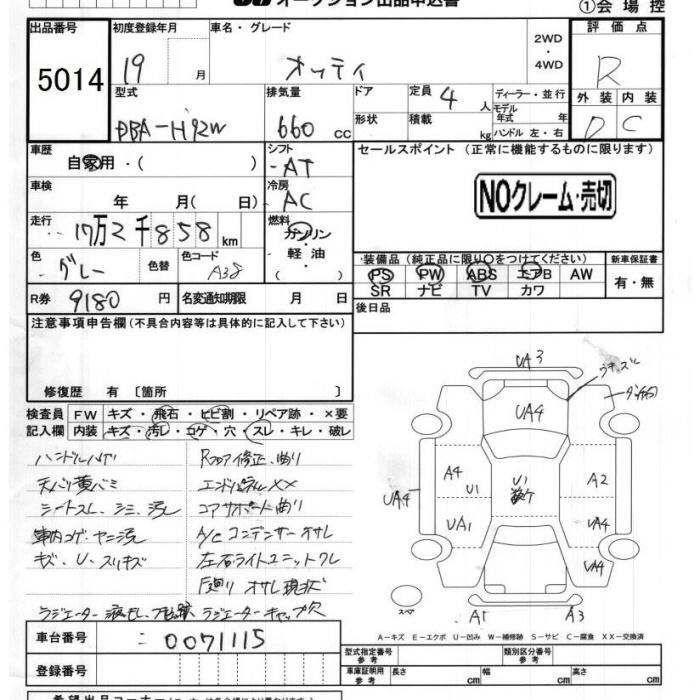 オークション出品申込書
①会場控
出品番号
5014
初度登録年月
19 月
車名・グレード
オッティ
2WD
・
4WD
評価点
R
型式
DBA-H92W
排気量
660 cc
ドア
形状
定員 4 人
積載 kg
ディーラー・並行
モデル
年式 年
ハンドル 左・右
外装 内装
D C
車歴
自家用・( )
シフト
AT
セールスポイント (正常に機能するものに限ります)
NOクレーム・売切
車検
年 月( 日)
冷房
AC
走行
17万2千858km
燃料
ガソリン
・
軽油
( )
色
グレー
色替
色コード
A38
装備品 (純正品に限り○をつけてください)
PS PW ABS エアB AW
SR ナビ TV カワ
新車保証書
有・無
R券 9180 円
名変通知期限 月 日
後日品
注意事項申告欄(不具合内容等は具体的に記入して下さい)
修復歴 有 〔箇所 〕
検査員
記入欄
FW キズ・飛石・ヒビ割・リペア跡・×要
内装 キズ・汚レ・コゲ・穴・スレ・キレ・破レ
ハンドルハゲ
天バリ黄バミ
シートスレ、シミ、汚レ
車内コゲ、ヤニ汚レ
キズ、U、スリキズ
Rフロア修正、曲リ
エンドパネルXX
コアサポート曲リ
A/Cコンデンサーオサレ
左右ライトユニットワレ
下廻リ オサレ現状
ラジエーターキャップ欠
UA3
UA4
A4
U1
UA4
UA1
U1
A2
UA4
UA4
スペア
A1
A3
A-キズ E-エクボ U-凹み W-補修跡 S-サビ C-腐食 XX-交換済
車台番号
0071115
登録番号
型式指定番号
参考
類別区分番号
参考
車庫証明用
参考
長さ cm
幅 cm
高さ cm